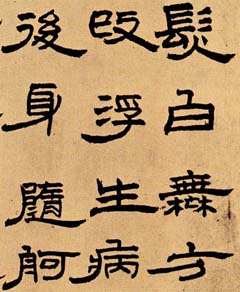 髮白無方
改浮生病
後身隨舸